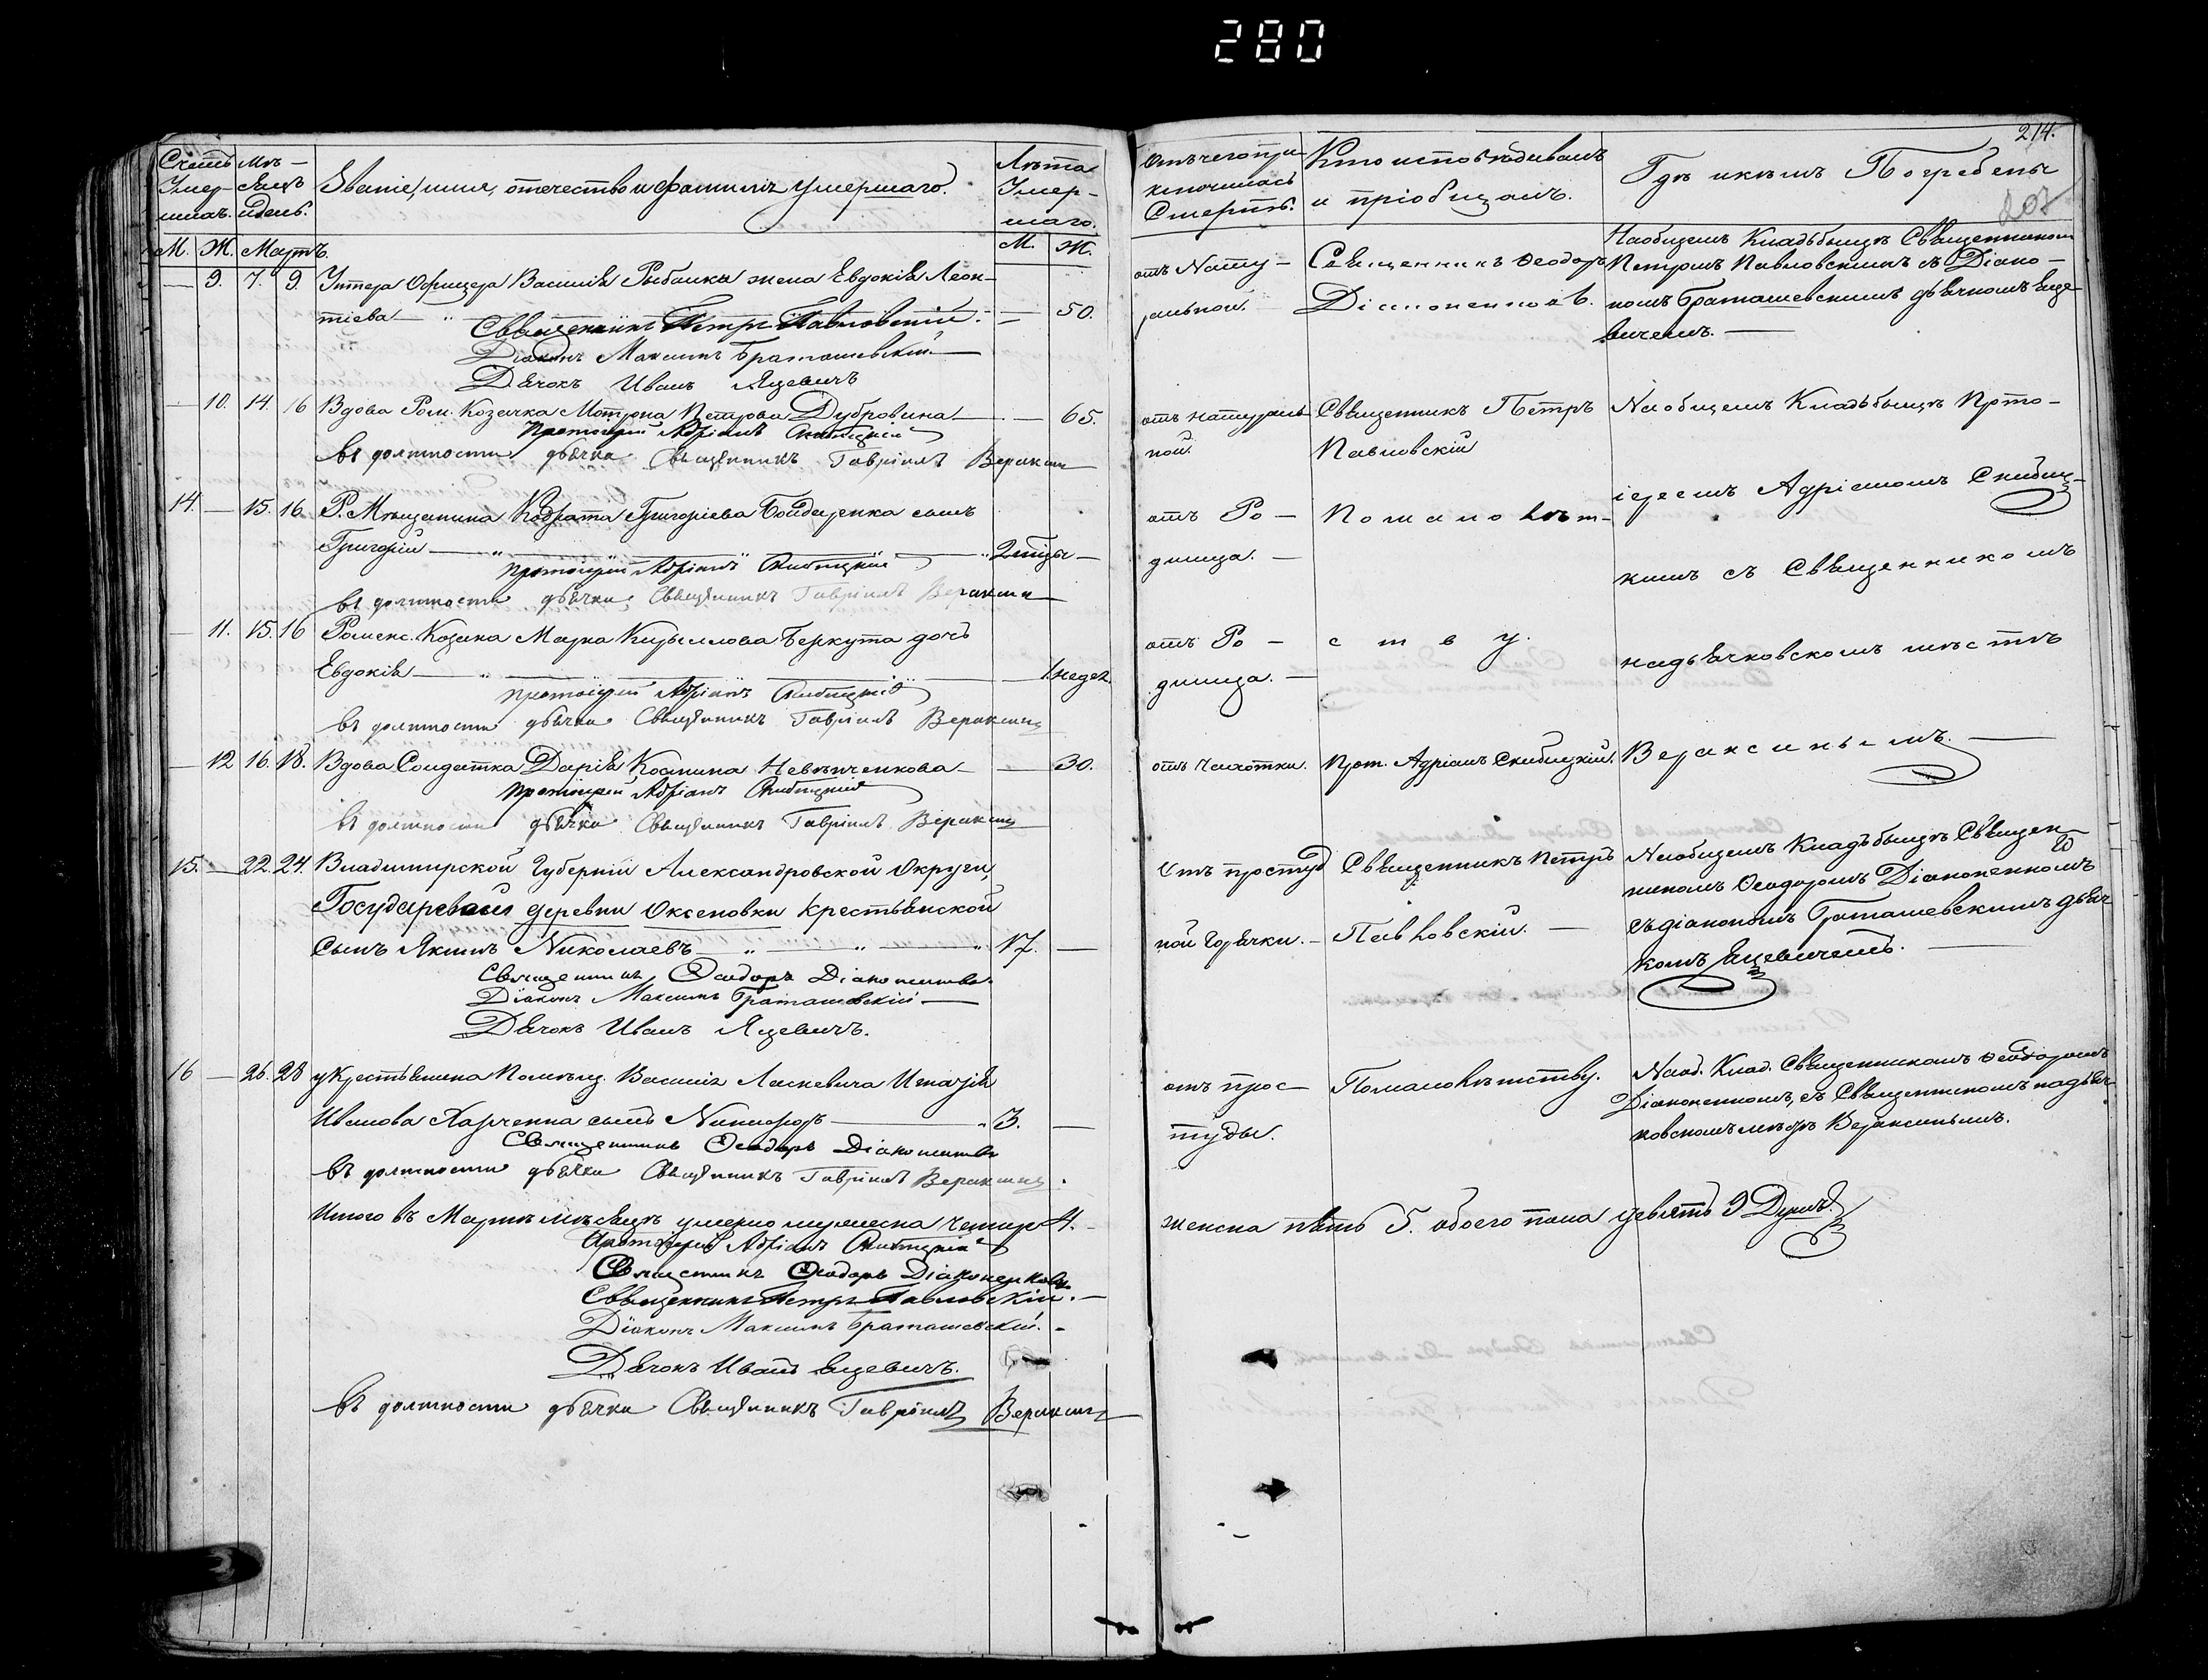 280
214.
Счетъ Умер-шихъ.
Мѣ-сяцъ и день.
Званіе, имя, отечество и фамилія умершаго.
Лѣта Умер-шаго.
Отъ чего при-ключилась Смерть.
Кто исповѣдывалъ и пріобщалъ.
Гдѣ и кѣмъ Погребены
М. Ж. Мартъ.
М. Ж.
9. 7. 9. Унтера Офицера Василія Рыбалки жена Евдокія Леон-
тіева 50.
Священникъ Петръ Павловскій.
Діаконъ Максимъ Браташевскій
Дячокъ Иванъ Яцевичъ
отъ Нату-
ральной.
Священникъ Ѳеодоръ
Діаконенковъ.
На общемъ Кладьбищѣ Священникомъ
Петромъ Павловскимъ съ Діако-
номъ Браташевскимъ дьячкомъ Яце-
вичемъ.
10. 14. 16 Вдова Ром. Козачка Мотрона Петрова Дубровина 65.
Протоіерей Адріанъ Скибицкій
въ должности дьячка Священникъ Гавріилъ Вераксин
отъ натураль
ной.
Священникъ Петръ
Павловскій
На общемъ Кладьбищѣ Прото-
іереемъ Адріаномъ Скибиц-
14. 15. 16 Р. Мѣщанина Кодрата Григоріева Бойдаренка сынъ
Григорій 2 мѣсц
Протоіерей Адріанъ Скибицкій
въ должности дьячка Священникъ Гавріилъ Вераксин
отъ Ро-
димца.
По мало лѣт-
кимъ съ Священникомъ
11. 15. 16 Роменс. Козака Марка Кирыллова Беркута дочь
Евдокія 1 недел.
Протоіерей Адріанъ Скибицкій
въ должности дьячка Священникъ Гавріилъ Вераксин
отъ Ро-
димца.
ству.
на дьячковскомъ мѣстѣ
12 16. 18. Вдова Солдатка Дарія Косьмина Невѣнченкова 30.
Протоіерей Адріанъ Скибицкій
въ должности дьячка Священникъ Гавріилъ Вераксин
отъ Чахотки.
Прот. Адріанъ Скибицкій.
Вераксинымъ.
15. 22. 24. Владимирской Губерніи Александровской Округи,
деревни Оксеновки Крестьянской
Сынъ Якимъ Николаевъ 17.
Священникъ Ѳеодоръ Діаконенковъ
Діаконъ Максимъ Браташевскій
Дячокъ Иванъ Яцевичъ.
Отъ простуд
ной Горячки.
Священникъ Петръ
Павловскій.
На общемъ Кладьбищѣ Священ-
никомъ Ѳеодоромъ Діаконенкомъ
съ діакономъ Браташевскимъ дьяч
комъ Яцевичемъ.
16 26. 28 у Крестьянина Помѣщ. Василія Ласкевича Игнатія
Иванова Харченка сынъ Никифоръ 3.
Священникъ Ѳеодоръ Діаконенковъ
въ должности дьячка Священникъ Гавріилъ Вераксин
отъ прос-
туды.
По малолѣтству.
На об. Клад. Священникомъ Ѳеодоромъ
Діаконенкомъ, съ Священникомъ на дьяч-
ковскомъ мѣстѣ Вераксинымъ.
Итого въ Мартѣ мѣсяцѣ умерло мужеска четыре 4.
женска пять 5. обоего пола девять 9 Душъ.
Протоіерей Адріанъ Скибицкій
Священникъ Ѳеодоръ Діаконенковъ
Священникъ Петръ Павловскій.
Діаконъ Максимъ Браташевскій.
Дячокъ Иванъ Яцевичъ.
въ должности дьячка Священникъ Гавріилъ Вераксин